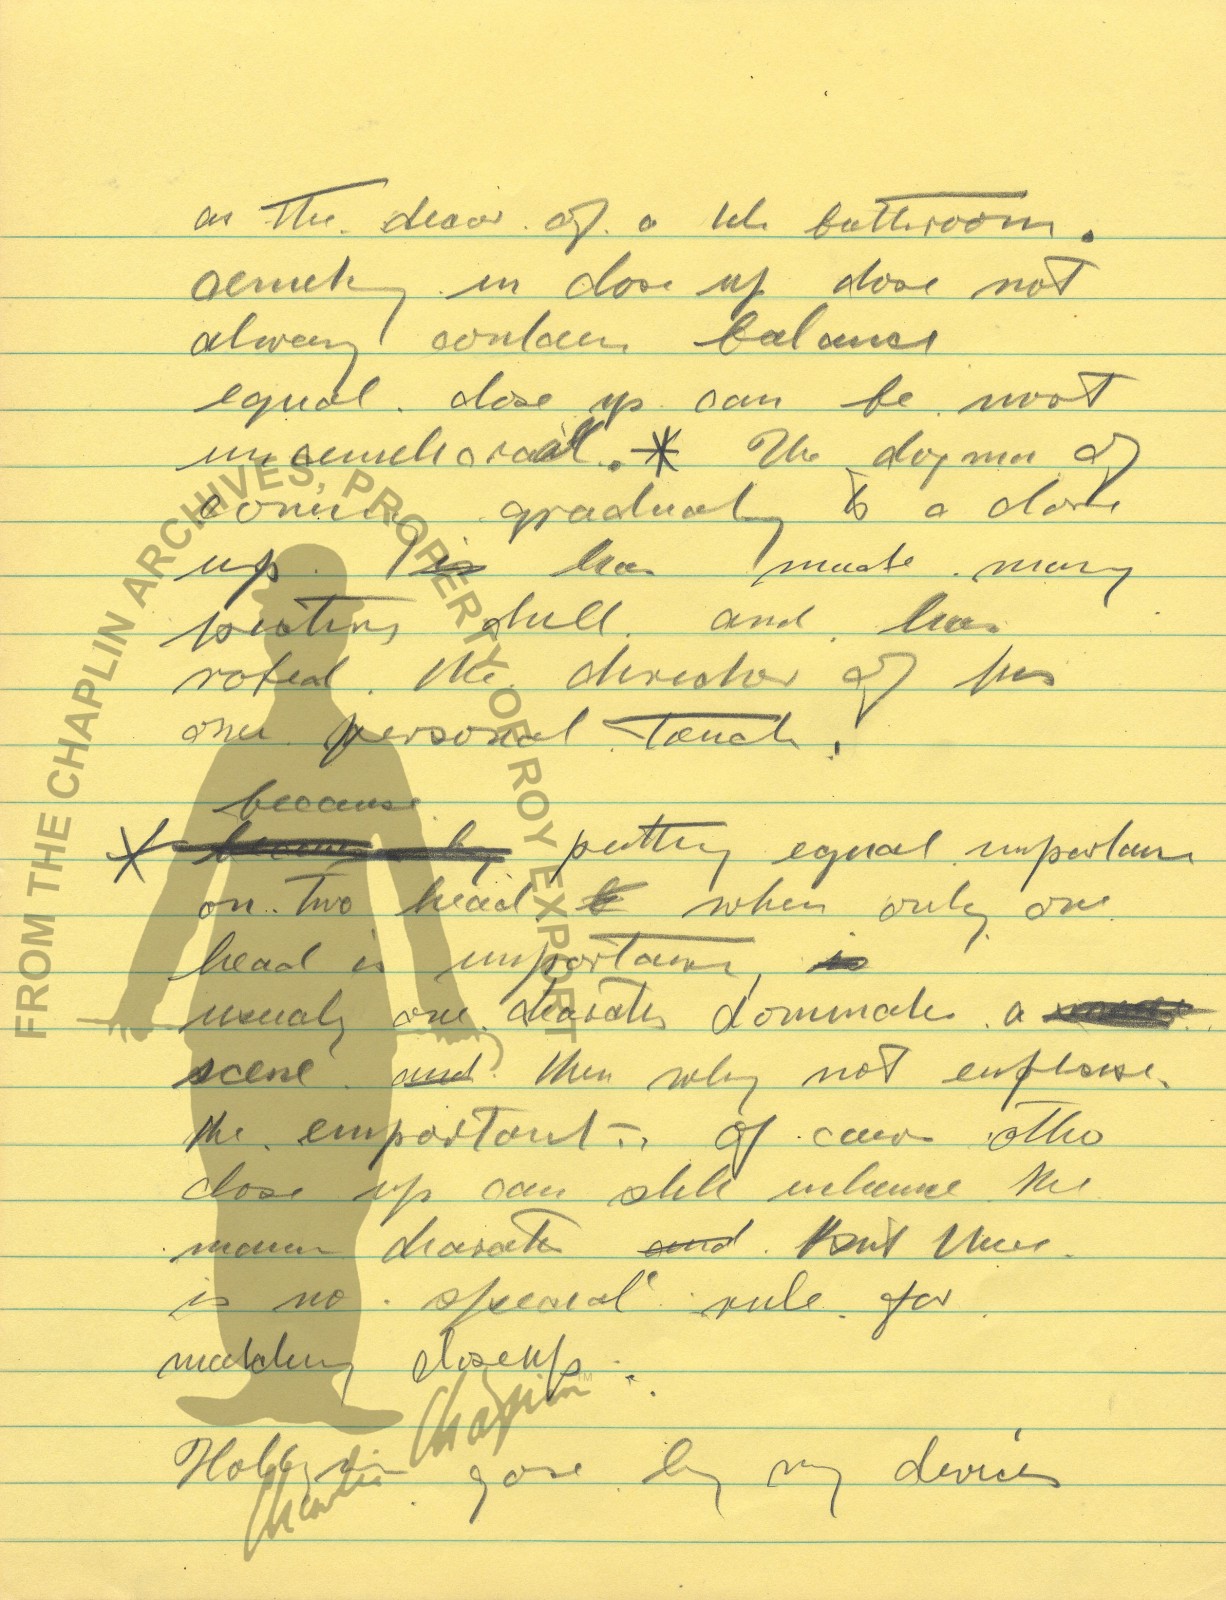 as the decor of a tile bathroom.
cemetry in close up dose not
alway contain balance
equal close up can be most
uncemetrical. * The dogma of
coming gradualy to a close
up is has made many
picturs dull and has
robed the director of his
own personal touch.
because
* by putting equal importanc
on two head when only one
head is importanc, is
usualy one charater dominate a
scene and then why not emphase
the emportant. of caurs the
close up can still enhance the
main charater and but there
is no special rule for
matching closeups.
gose by my devices
FROM THE CHAPLIN ARCHIVES, PROPERTY OF ROY EXPORT
Charlie Chaplin™